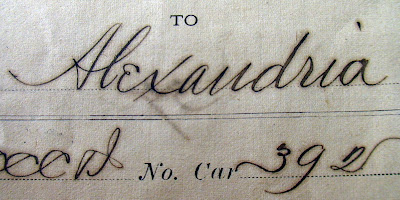 TO
Alexandria
No. Car 392